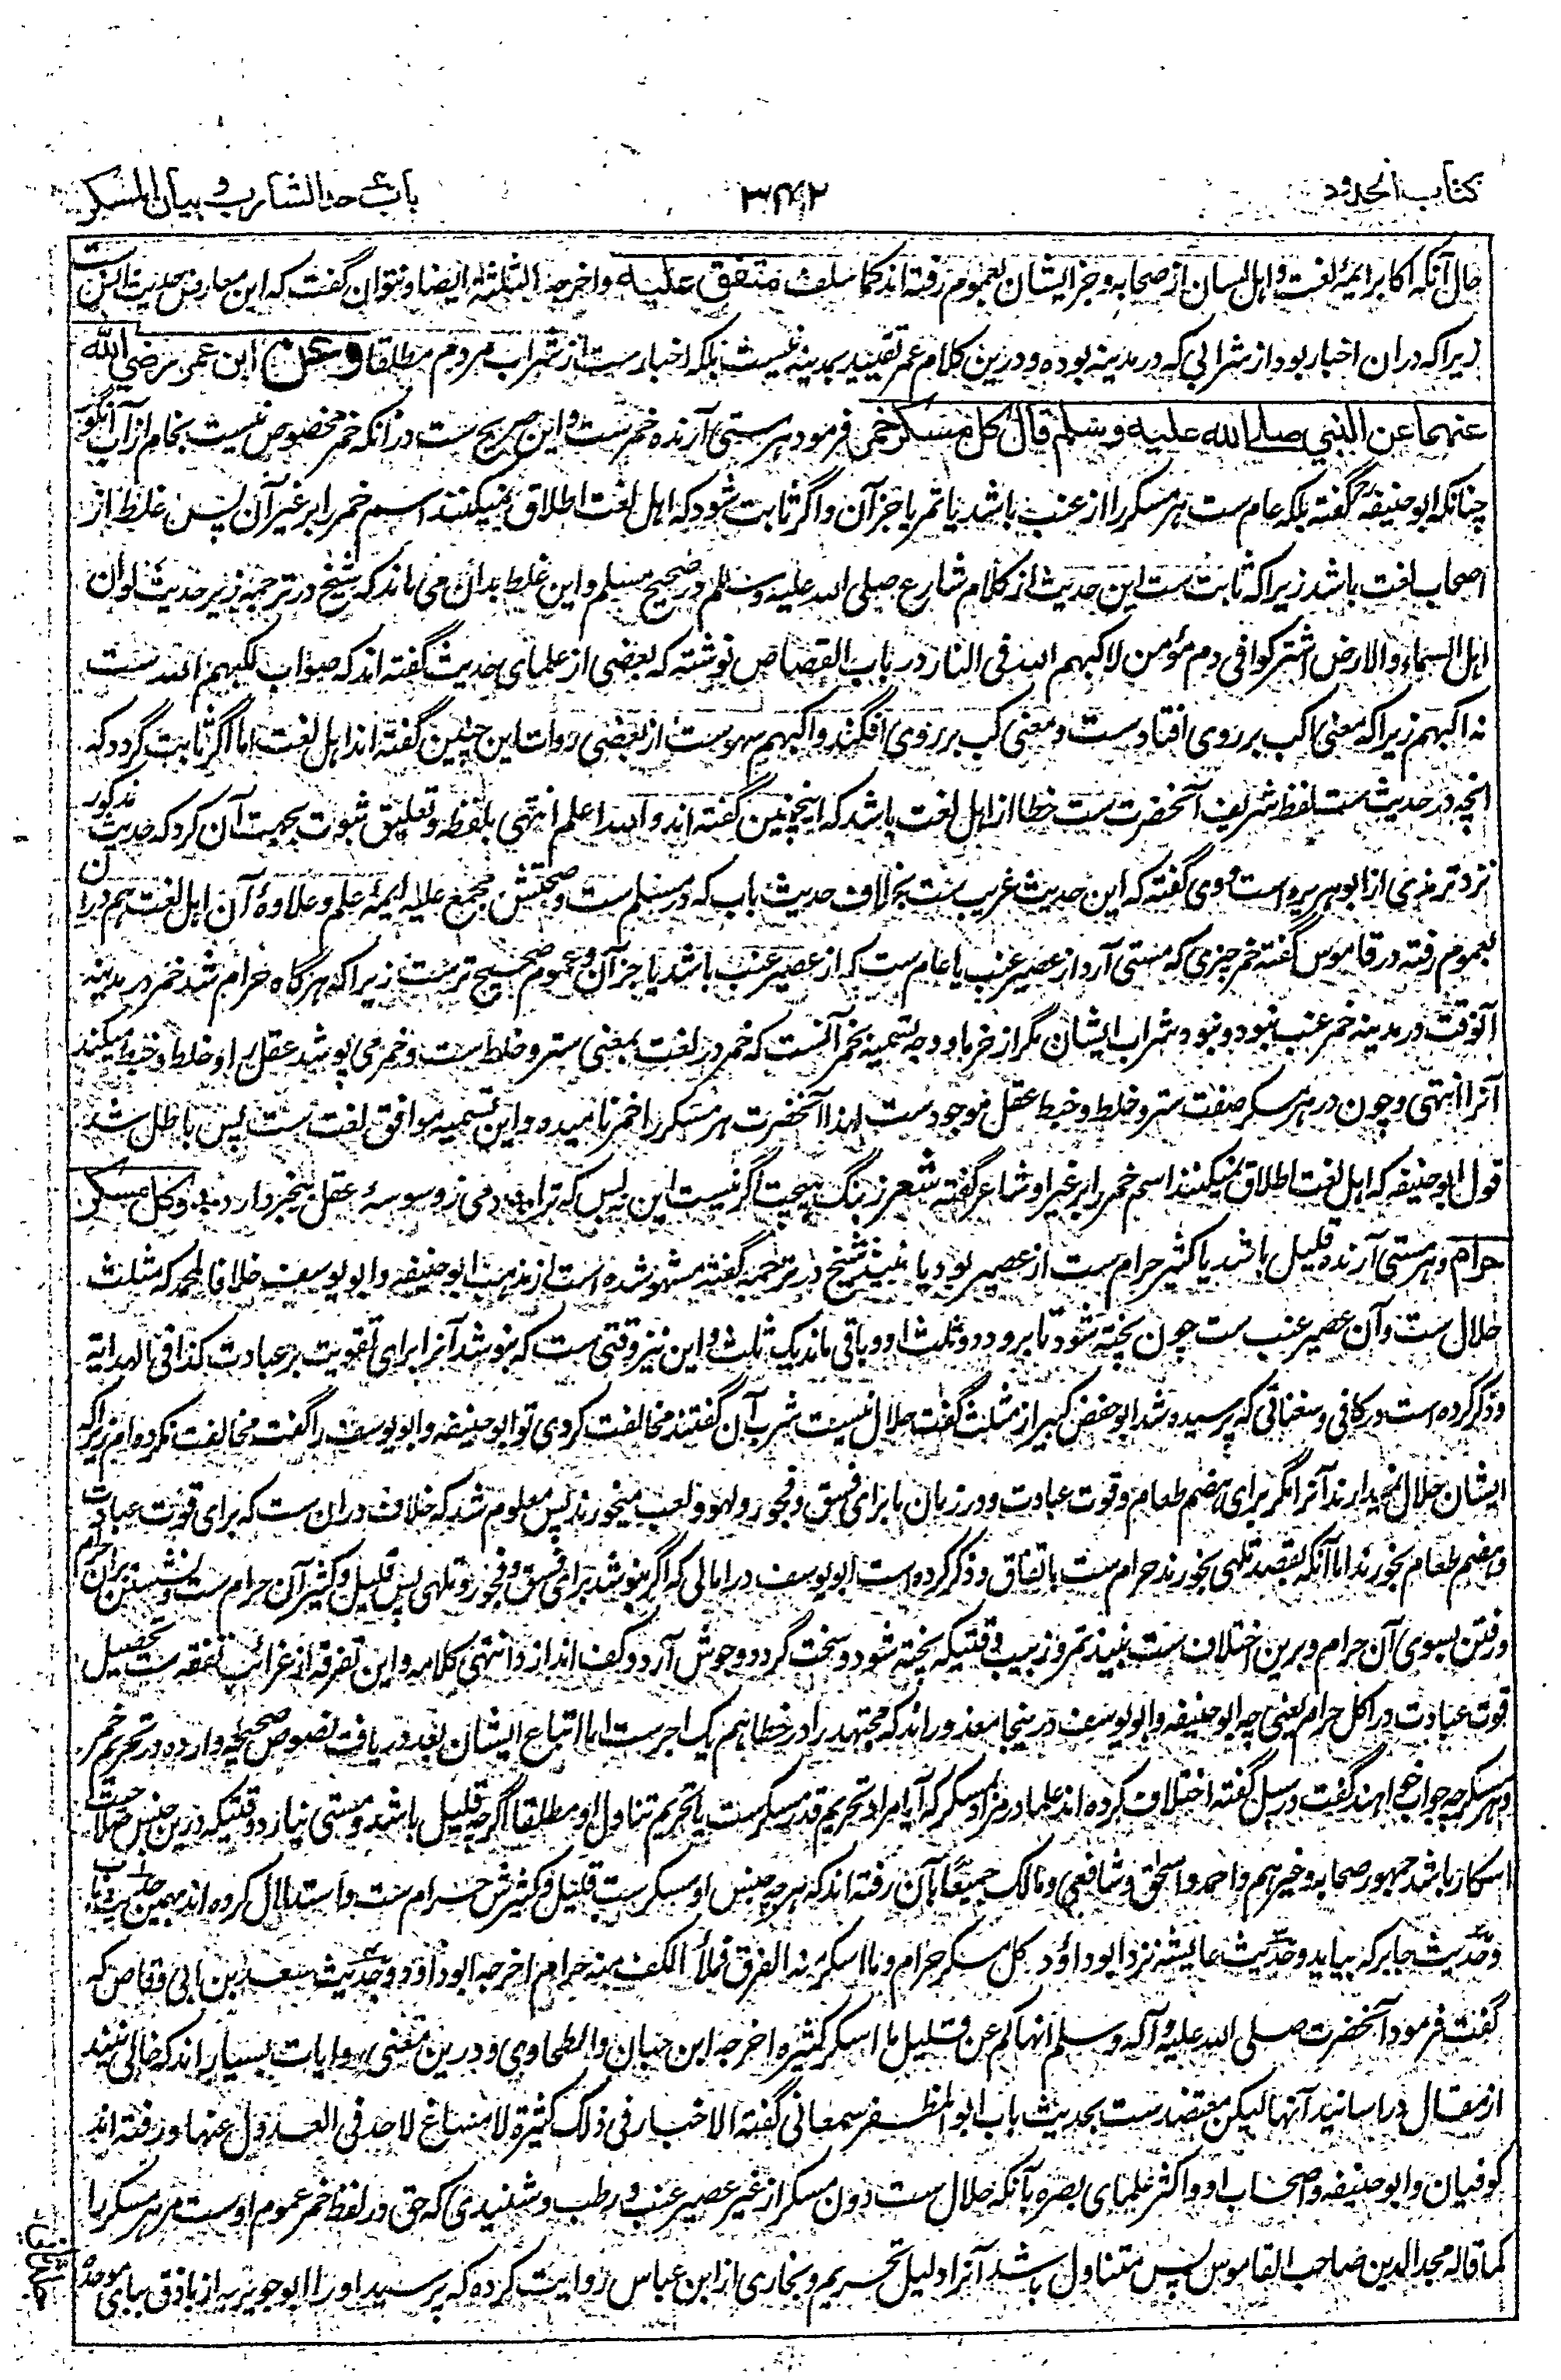 کتاب الحدود ۳۴۲ باب حد الشارب و بیان المسکر
حال آنکه اکابر ائمهٔ لغت و اهل لسان از صحابه و جز ایشان بعموم رفته اند کما سلف متفق علیه و اخرجه الثلثة ایضا و نتوان گفت که این معارض حدیث انس ست
زیرا که دران اخبار بود از شرابی که در مدینه بوده و درین کلام عمر تقیید بمدینه نیست بلکه اخبارست از شراب مردم مطلقا وعن ابن عمر رضی الله
عنهما عن النبی صلی الله علیه وسلم قال کل مسکر خمر فرمود هر مستی آرنده خمرست و این صریح ست در آنکه خمر مخصوص نیست بخام از آب انگور
چنانکه ابو حنیفه رح گفته بلکه عام ست هر مسکر را از عنب باشد یا تمر یا جز آن و اگر ثابت شود که اهل لغت اطلاق نمیکنند اسم خمر را بر غیر آن پس غلط از
اصحاب لغت باشد زیرا که ثابت ست این حدیث از کلام شارع صلی الله علیه وسلم در صحیح مسلم و این غلط بدان می ماند که شیخ در ترجمه زیر حدیث لو ان
اهل السماء والارض اشترکوا فی دم مؤمن لاکبهم الله فی النار در باب القصاص نوشته که بعضی از علمای حدیث گفته اند که صواب لکبهم الله ست
نه اکبهم زیرا که معنی اکب بر روی افتادست و معنی کب بر روی افگند و اکبهم سهوست از بعضی روات این چنین گفته اند اهل لغت اما اگر ثابت گردد که
انچه در حدیث ست لفظ شریف آنحضرت ست خطا از اهل لغت باشد که اینچنین گفته اند والله اعلم انتهی بلفظه و تعلیق ثبوت بجهت آن کرد که حدیث مذکور
نزد ترمذی از ابو هریره است و وی گفته که این حدیث غریب ست بخلاف حدیث باب که در مسلم ست و صحتش مجمع علیه ائمهٔ علم و علاوهٔ آن اهل لغت هم دران
بعموم رفته در قاموس گفته خمر چیزی که مستی آرد از عصیر عنب یا عام ست که از عصیر عنب باشد یا جز آن و عموم صحیح ترست زیرا که هرگاه حرام شد خمر در مدینه
آنوقت در مدینه خمر عنب نبود و نبود شراب ایشان مگر از خرما و وجه تسمیه بخمر آنست که خمر در لغت بمعنی ستر و خلط ست و خمر می پوشد عقل را و خلط و خبط میکند
آنرا انتهی و چون در هر مسکر صفت ستر و خلط و خبط عقل موجودست لهذا آنحضرت هر مسکر را خمر نامیده و این تسمیه موافق لغت ست پس باطل شد
قول ابو حنیفه که اهل لغت اطلاق نمیکنند اسم خمر را بر غیر او شاعر گفته شعر ز بنگ هیچت اگر نیست این نه بس که ترا دمی ز وسوسهٔ عقل بیخبر دارد وکل مسکر
حرام و هر مستی آرنده قلیل باشد یا کثیر حرام ست از عصیر بود یا نبیذ شیخ در ترجمه گفته مشهور شده است از مذهب ابو حنیفه و ابو یوسف خلافا لمحمد که مثلث
حلال ست و آن عصیر عنب ست چون پخته شود تا برود دو ثلث او و باقی ماند یک ثلث و این نیز وقتی ست که بنوشد آنرا برای تقویت بر عبادت کذا فی الهدایة
و ذکر کرده است در کافی و سغناقی که پرسیده شد ابو حفص کبیر از مثلث گفت حلال نیست شرب آن گفتند مخالفت کردی تو ابو حنیفه و ابو یوسف را گفت مخالفت نکرده ام زیرا که
ایشان حلال نمیدارند آنرا مگر برای هضم طعام و قوت عبادت و در زمان ما برای فسق و فجور و لهو و لعب میخورند پس معلوم شد که خلاف دران ست که برای قوت عبادت
و هضم طعام بخورند اما آنکه بقصد تلهی بخورند حرام ست باتفاق و ذکر کرده است ابو یوسف در امالی که اگر بنوشد برای فسق و فجور و تلهی پس قلیل و کثیر آن حرام ست و نشستن بران حرام
و رفتن بسوی آن حرام و برین اختلاف ست نبیذ تمر و زبیب وقتیکه پخته شود و سخت گردد و جوش آرد و کف اندازد انتهی کلامه و این تفرقه از غرائب تفقه ست تحصیل
قوت عبادت در اکل حرام یعنی چه ابو حنیفه و ابو یوسف درینجا معذور اند که مجتهد را در خطا هم یک اجرست اما اتباع ایشان بعد دریافت نصوص صحیحه وارده در تحریم خمر
و هر مسکر چه جواب خواهند گفت در سبل گفته اختلاف کرده اند علما در هر مسکر که آیا مراد تحریم قدر مسکرست یا تحریم تناول او مطلقا اگرچه قلیل باشد و مستی نیارد وقتیکه درین جنس صلاحیت
اسکار باشد جمهور صحابه و غیرهم و احمد و اسحق و شافعی و مالک جمیعًا بآن رفته اند که هرچه جنس او مسکرست قلیل و کثیرش حرام ست و استدلال کرده اند بهمین حدیث باب
و حدیث جابر که بیاید و حدیث عایشه نزد ابو داؤد کل مسکر حرام وما اسکر منه الفرق فملأ الکف منه حرام اخرجه ابو داؤد و حدیث سعد بن ابی وقاص که
گفت فرمود آنحضرت صلی الله علیه وآله وسلم انهاکم عن قلیل ما اسکر کثیره اخرجه ابن حبان والطحاوی و درین معنی روایات بسیار اند که خالی نیند
از مقال در اسانید آنها لیکن معتضدست بحدیث باب ابو المظفر سمعانی گفته الاخبار فی ذلک کثیرة لا مساغ لاحد فی العدول عنها و رفته اند
کوفیان و ابو حنیفه و اصحاب او و اکثر علمای بصره بآنکه حلال ست دون مسکر از غیر عصیر عنب و رطب و شنیدی که حق در لفظ خمر عموم اوست مر هر مسکر را
کما قاله مجد الدین صاحب القاموس پس متناول باشد آنرا دلیل تحریم و بخاری از ابن عباس روایت کرده که پرسید او را ابو جویریه از باذق ببای موحده